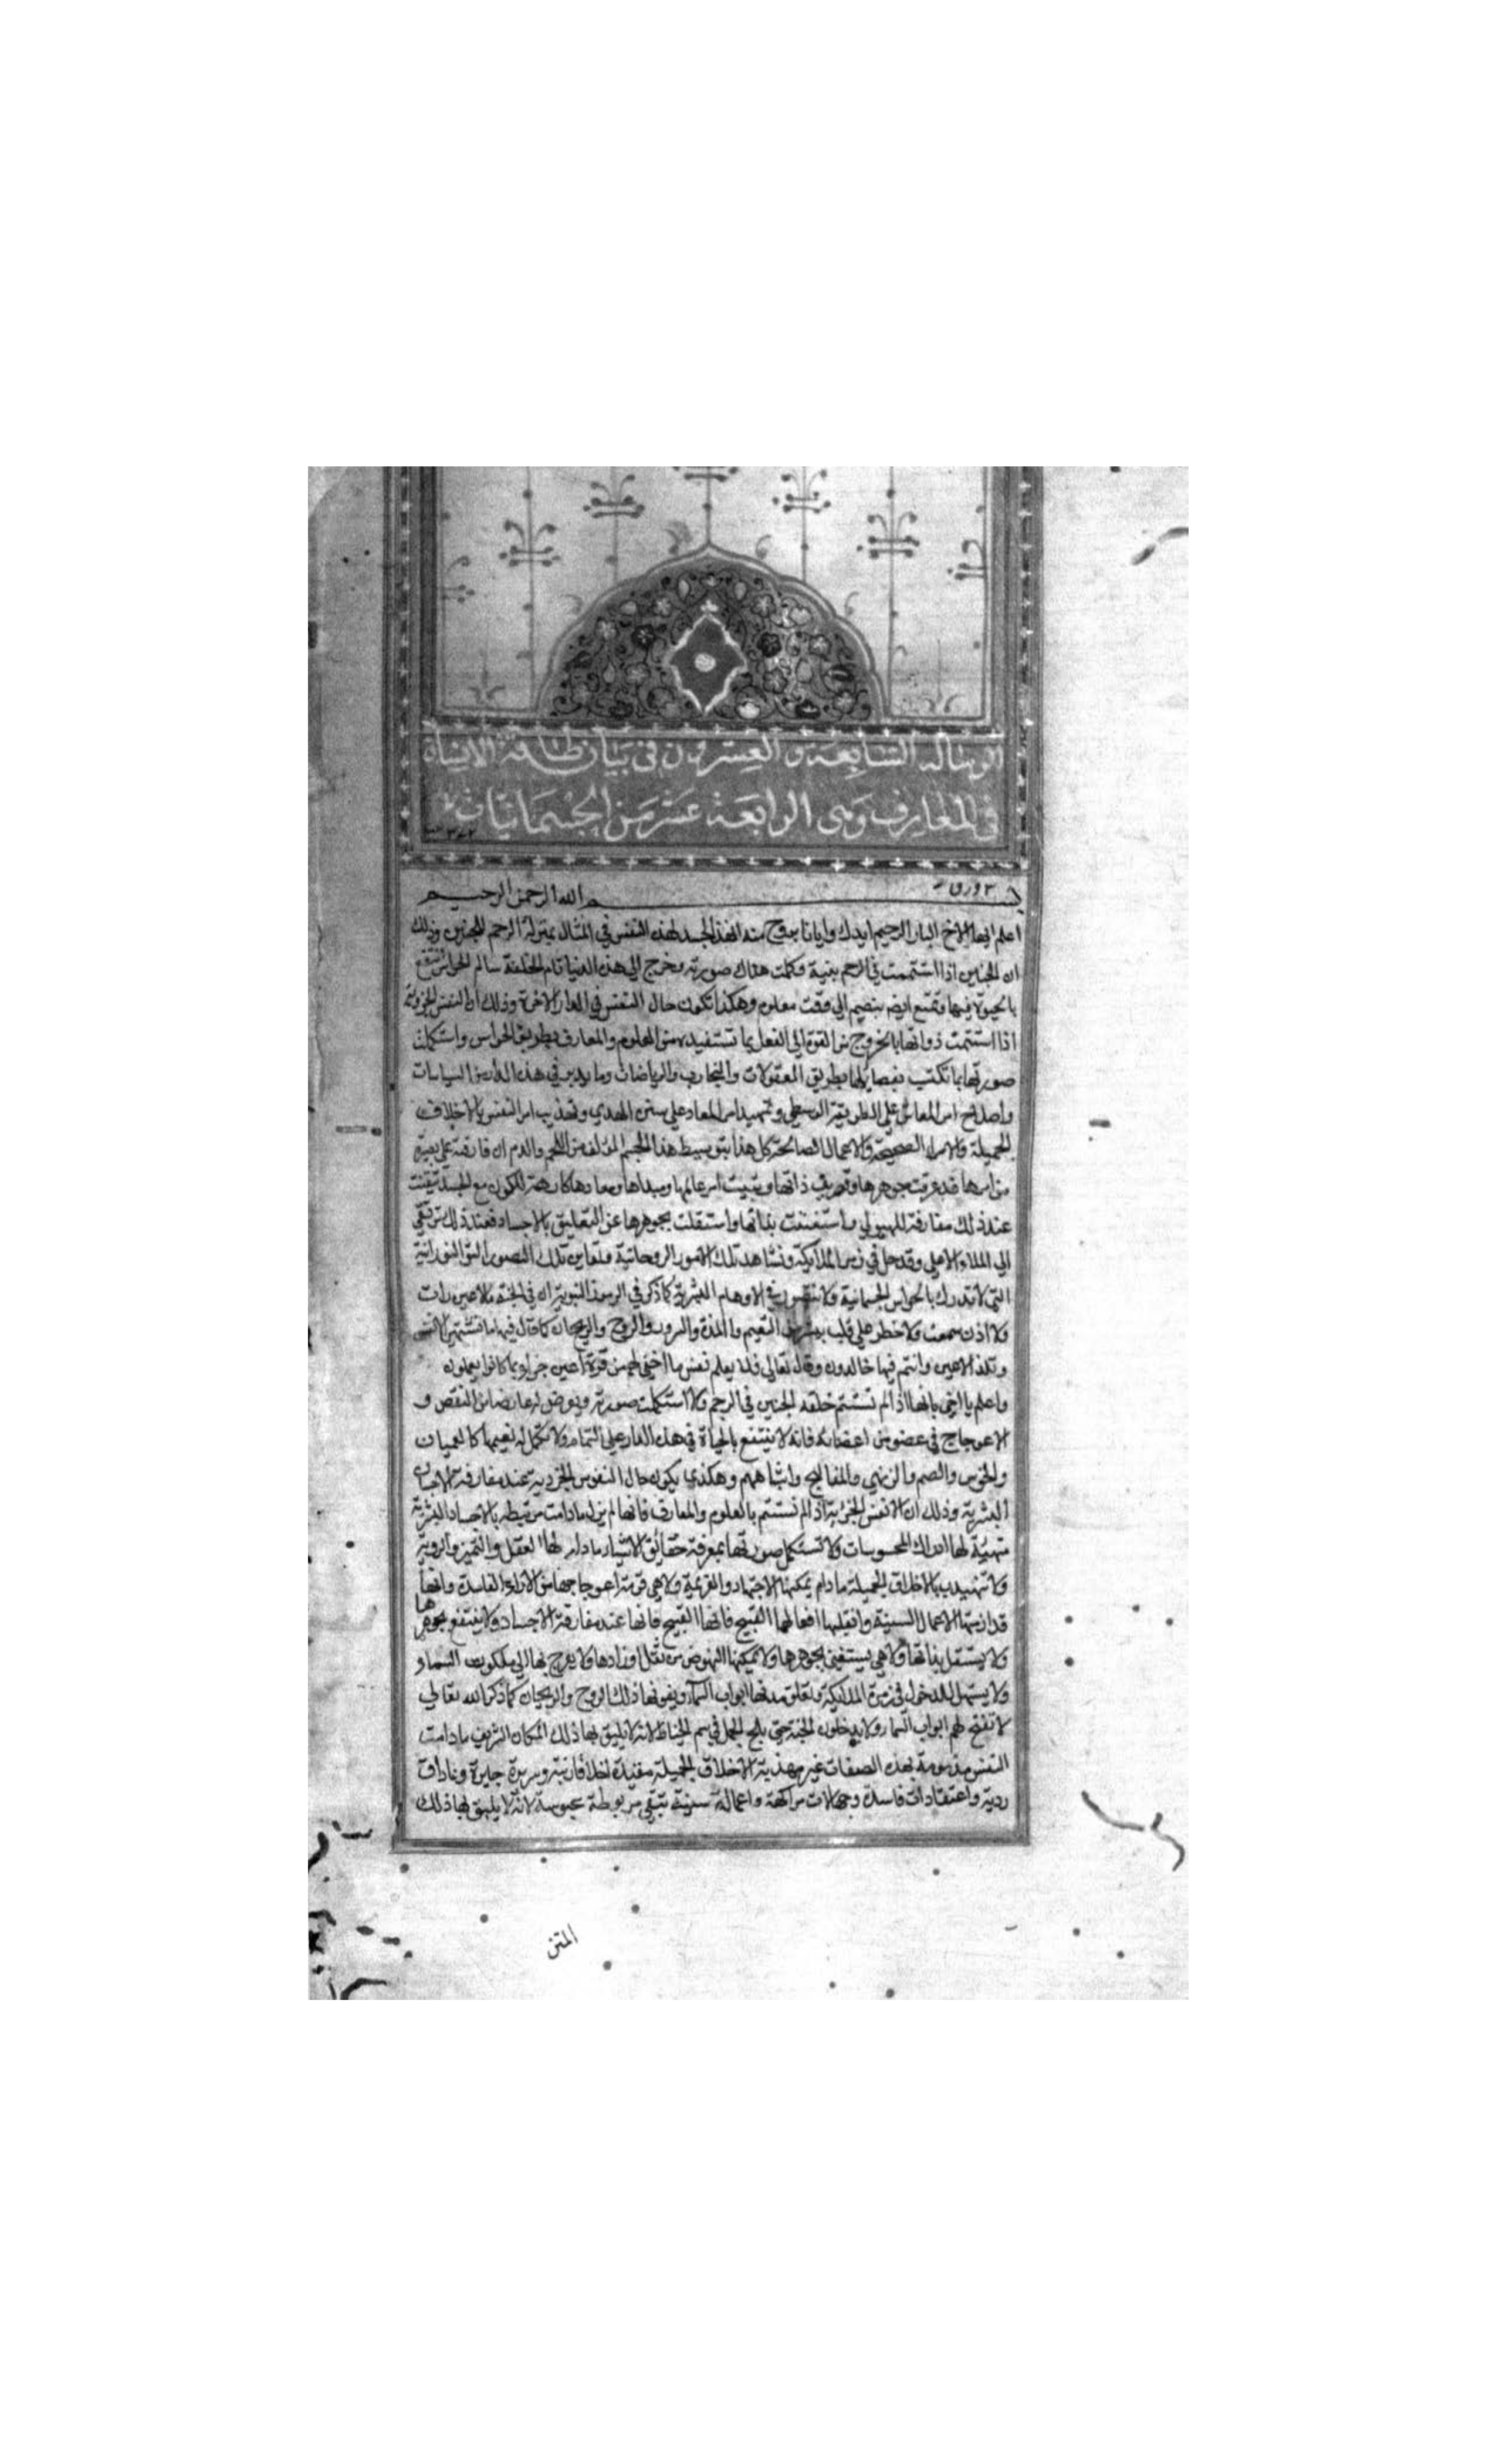 الرسالة السابعة والعشرون في بيان طاقة الانسان
في المعارف وهى الرابعة عشر من الجسمانيات
٢ ورق
بسم الله الرحمن الرحيم
اعلم ايها الاخ البار الرحيم ايدك وايانا بروح منه ان هذا الجسد لهذه النفس في المثال بمنزلة الرحم للجنين وذلك
ان الجنين اذا استتمت في الرحم بنية وكملت هناك صورته وخرج الى هذه الدنيا تام الخلقة سالم الحواس انتفع
بالحيوة فيها وتمتع بنعيم الى وقت معلوم وهكذا تكون حال النفس في الدار الاخرة وذلك ان النفس الجزوية
اذا استتمت ذواتها بالخروج من القوة الى الفعل بما تستفيد من العلوم والمعارف بطريق الحواس واستكملت
صورتها بما تكتب بفضايلها بطريق المعقولات والتجارب والرياضات وما يدبر في هذه الدار من السياسات
واصلاح امر المعاش على الطريقة الوسطى وتمهيد امر المعاد على سنن الهدي وتهذيب امر النفس بالاخلاق
الجميلة والاراء الصحيحة والاعمال الصالحة كل هذا بتوسيط هذا الجسم المؤلف من اللحم والدم ان فارقته على بصيرة
من امرها قد عرفت جوهرها وتصرف ذاتها وتبينت امر عالمها ومبداها ومعادها كارهة للكون مع الجسد تيقنت
عند ذلك مفارقة للهيولى واستغنت بذاتها واستقلت بجوهرها عن التعليق بالاجساد فعند ذلك ترتقي
الى الملاء الاعلى وتدخل في زمر الملايكة وتشاهد تلك الامور الروحانية وتعاين تلك الصور النورانية
التي لا تدرك بالحواس الجسمانية ولا تتصور في الاوهام البشرية كما ذكر في الرموز النبوية ان في الجنة ما لا عين رات
ولا اذن سمعت ولا خطر على قلب بشر من النعيم واللذة والسرور والروح والريحان كما قال فيها ما تشتهي الانفس
وتلذ الاعين وانتم فيها خالدون وقال تعالى فلا يعلم نفس ما اخفي لهم من قرة اعين جزاء بما كانوا يعملون
واعلم يا اخي بانها اذا لم تستتم خلقه الجنين في الرحم ولا استكملت صورته ويعرض له عارض من النقص و
الاعوجاج في عضو من اعضائه فانه لا ينتفع بالحياة في هذه الدار على التمام ولا تكمل له نعيمها كالعميان
والخرس والصم والزمني والمفاليج واشباههم وهكذى يكون حال النفوس الجزوية عند مفارقة الاجساد
البشرية وذلك ان الانفس الجزئية اذا لم تستتم بالعلوم والمعارف فانها لم يزل ما دامت مرتبطه بالاجساد البشرية
متهيئة لها ادراك المحسوسات ولا تستكمل صورتها بمعرفة حقائق الاشياء ما دام لها العقل والتميز والروية
ولا تتهذب بالاخلاق الجميلة ما دام يمكنها الاجتهاد والعزيمة ولا هي قومة اعوجاجها من الاراء الفاسدة وانها
قد ازمتها الاعمال السيئة واثقلها افعالها القبيح فانها القبيح فانها عند مفارقة الاجساد ولا ينتفع بجوهرها
ولا يستقل بذاتها ولا هي يستغني بجوهرها ولا يمكنها النهوض من ثقل اوزادها ولا يعرج بها الى ملكوت السماء
ولا يستهل للدخول في زمرة الملائكة وتغلق دونها ابواب السماء ويفوتها ذلك الروح والريحان كما ذكر الله تعالى
لا تفتح لهم ابواب السماء ولا يدخلون الجنة حتى يلج الجمل في سم الخياط لانه لا يليق بها ذلك المكان الشريف ما دامت
النفس مذمومة بهذه الصفات غير مهذبة الاخلاق الجميلة مقيدة وسريرة جايرة وعادات
ردية واعتقادات فاسدة وجهالات متراكمة واعمالة سيئة تبقى مربوطة محبوسة لانه لا يليق بها ذلك
المتن